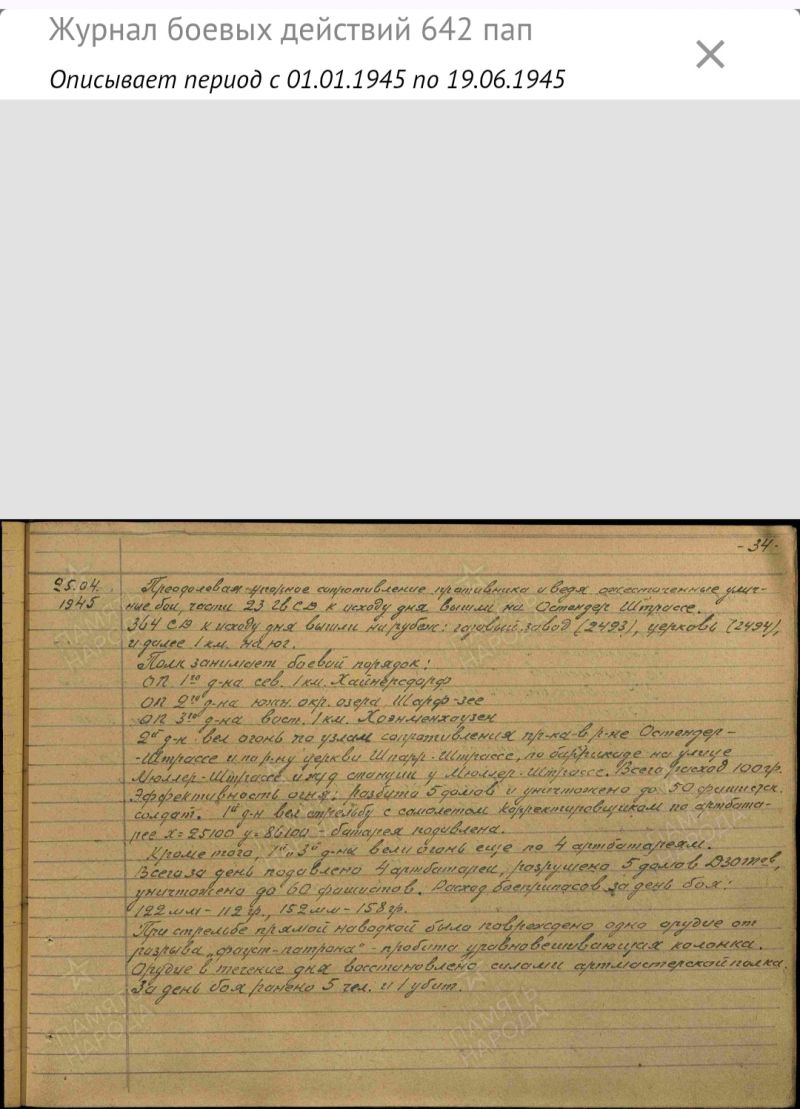 Журнал боевых действий 642 пап
Описывает период с 01.01.1945 по 19.06.1945
-34-
25.04. Преодолевая упорное сопротивление противника и ведя ожесточенные улич-
1945 ные бои, части 23 Гв СД к исходу дня вышли на Остендер Штрассе.
364 СД к исходу дня вышли на рубеж: газовый завод (2493), церковь (2494),
и далее 1 км. на юг.
Полк занимает боевой порядок:
ОП 1го д-на сев. 1 км. Хайнерсдорф
ОП 2го д-на южн. окр. озера Шарф-зее
ОП 3го д-на вост. 1 км. Хоэнменхаузен
2й д-н вел огонь по узлам сопротивления пр-ка в р-не Остендер-
-Штрассе и по р-ну церкви Шпарр-Штрассе, по баррикаде на улице
Мюллер-Штрассе и жд станции у Мюллер-Штрассе. Всего расход 100 гр.
Эффективность огня: разбито 5 домов и уничтожено до 50 фашистск.
солдат. 1й д-н вел стрельбу с самолетом корректировщикам по артбата-
рее х=25100 у=86100 - батарея подавлена.
Кроме того, 1й и 3й д-ны вели огонь еще по 4 артбатареям.
Всего за день подавлено 4 артбатареи, разрушено 5 домов ДЗОТов,
уничтожено до 60 фашистов. Расход боеприпасов за день боя:
122 мм - 112 гр., 152 мм - 158 гр.
При стрельбе прямой наводкой было повреждено одно орудие от
разрыва „фауст-патрона" - пробита уравновешивающая колонка.
Орудие в течение дня восстановлено силами артмастерской полка.
За день боя ранено 5 чел. и 1 убит.
ПАМЯТЬ НАРОДА
ПАМЯТЬ НАРОДА
ПАМЯТЬ НАРОДА
ПАМЯТЬ НАРОДА